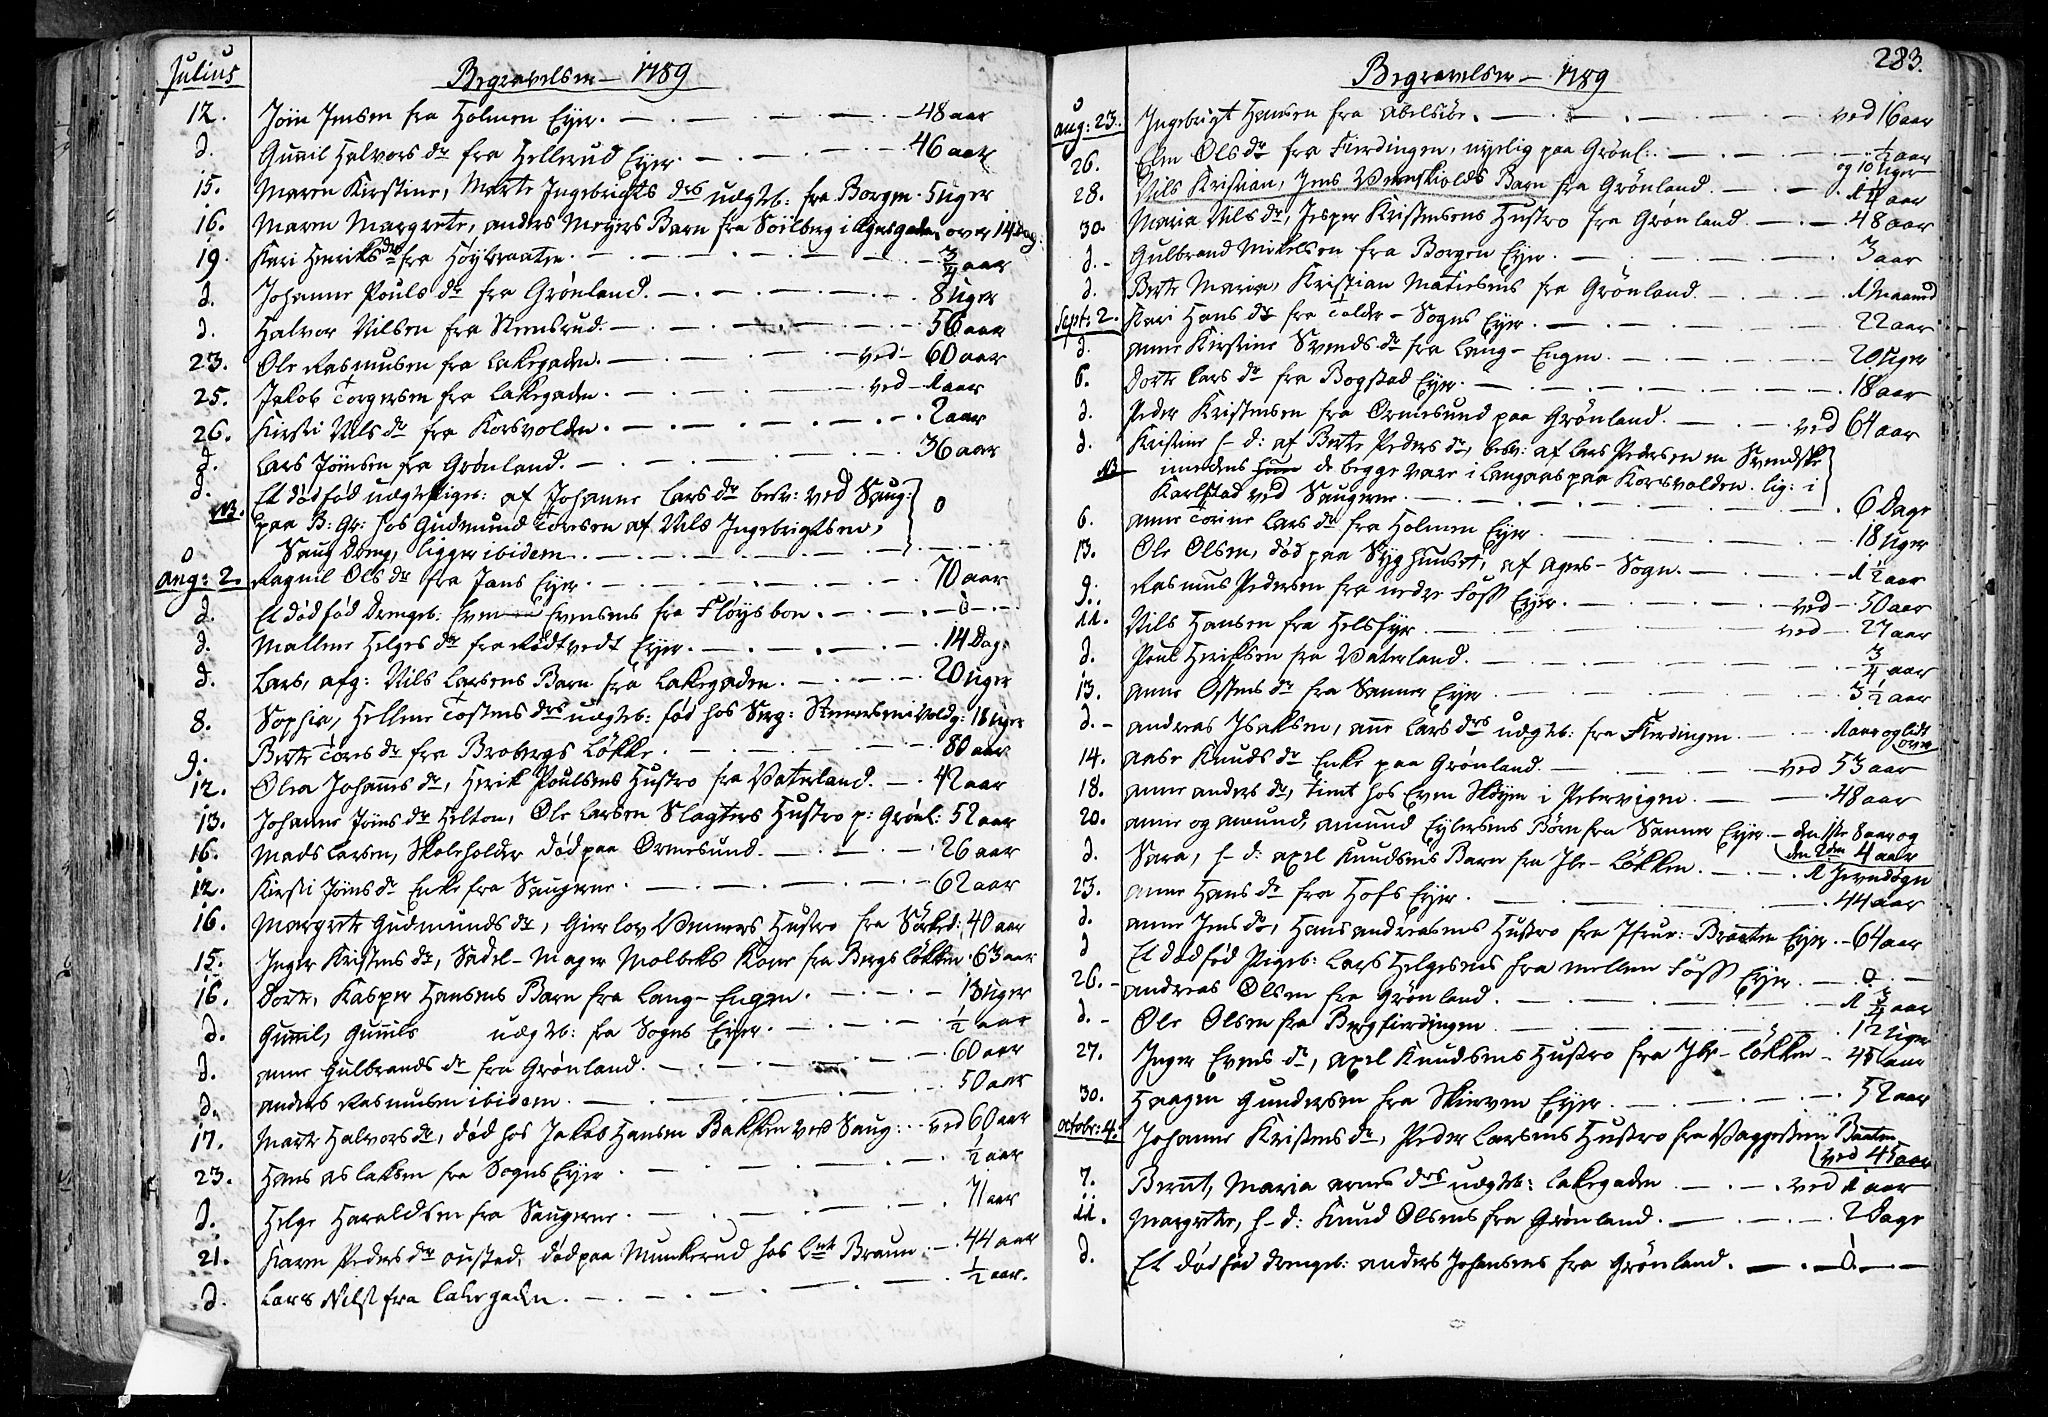 Julius
Begravelser - 1789
12. Jöin Jensen fra Holmen Eyer. 48 aar
d. Gunnil Halvors dr fra Hellerud Eyer. 46 aar
15. Maren Kirstine, Marte Ingebrigts drs udgtb: fra Borgen. 5 uger
16. Maren Margrete, Anders Meyers Barn fra i Agersgaden, over 14 Dag:
19. Kari Henriks dr fra Höybraaten. 3/4 aar
d. Johanne Pouls dr fra Grönland. 8 uger
d. Halvor Nilsen fra Steensrud. 56 aar
23. Ole Rasmusen fra Lakegaden. ved 60 aar
25. Jakob Torgersen fra Lakegaden. ved 1 aar
26. Kirsti Nils dr fra Korsvolden. 2 aar
d. Lars Jöinsen fra Grönland. 36 aar
d. Et dödfód udgte Pigeb: af Johanne Lars dr besv: ved Saug:
NB. paa B: Gr: hos Gudmund Toresen af Nils Ingebrigtsen, 0
Saug Dreng, ligger ibidem.
Aug: 2. Ragnil Ols dr fra Jans Eyer. 70 aar
d. Et död fód Drengeb: Svensens fra Flöysbon. 0
d. Mallene Helges dr fra Rödtvedt Eyer. 14 Dag:
d. Lars, afg: Nils Larsens Barn fra Lakegaden. 20 uger
8. Sophia, Hellene Tostens drs udgtb: fód hos Serg: i Voldg: 18 uger
9. Berte Tores dr fra Brobergs Lökke. 80 aar
12. Olea Johannes dr, Henrik Poulsens Hustro fra Vaterland. 42 aar
13. Johanne Jöins dr Helton, Ole Larsen Slagters Hustro p: Grönl: 52 aar
16. Mads Larsen, Skoleholder död paa Ormesund. 26 aar
12. Kirsti Jöins dr Enke fra Saugerne. 62 aar
16. Margrete Gudmunds dr, Gierlov Hustro fra Sörked: 40 aar
15. Inger Kristens dr, Sadel-Mager Molbeks Kone fra Bergs Lökken. 63 aar
16. Dorte, Kasper Hansens Barn fra Lang-Engen. 13 uger
d. Gunnil, Gunnils udgtb: fra Sogns Eyer. 1/2 aar
d. Anne Gulbrands dr fra Grönland. 60 aar
d. Anders Rasmusen ibidem. 50 aar
17. Marte Halvors dr, död hos Jakob Hansen Bakken ved Saug: ved 60 aar
23. Hans Aslaksen fra Sogns Eyer. 1/2 aar
d. Helge Haraldsen fra Saugerne. 71 aar
21. Karen Peders dr Ousted, död paa Munkerud hos Lnt Braun. 44 aar
d. Lars Nilss fra Lakegaden. 1/2 aar.
283.
Begravelser - 1789
Aug: 23. Ingebrigt Hansen fra Abelsöe. ved 16 aar
26. Elen Ols dr fra Fierdingen, nyelig paa Grönl: 1/2 aar og 10 uger
28. Nils Kristian, Jens Barn fra Grönland. 1 1/4 aar
30. Maria Nils dr, Jesper Kristensens Hustro fra Grönland. 48 aar
d. Gulbrand Mikelsen fra Borgen Eyer. 3 aar
d. Berte Maria, Kristian Matiesens fra Grönland. 1 Maaned
Sept: 2. Kari Hans dr fra Tolder-Sogns Eyer. 22 aar
d. Anne Kirstine Svends dr fra Lang-Engen. 20 uger
6. Dorte Lars dr fra Bogstad Eyer. 18 aar
d. Peder Kristensen fra Ormesund paa Grönland. ved 64 aar
d. Kristine h-d: af Berte Peders dr, besv: af Lars Pedersen en Svendske
NB imedens de begge vare i Langaas paa Korsvolden. lig: i
Karlstad ved Saugerne. 6 Dage
6. Anne Torine Lars dr fra Holmen Eyer. 18 uger
13. Ole Olsen, död paa Syghuuset, af Agers-Sogn. 1 1/2 aar
9. Rasmus Pedersen fra nedre Foss Eyer. ved 50 aar
11. Nils Hansen fra Helsfyr. ved 27 aar
d. Poul Henriksen fra Vaterland. 3/4 aar
13. Anne Ostens dr fra Sanner Eyer. 3 1/2 aar
d. Andreas Isaksen, Anne Lars drs udgtb: fra Fierdingen. 1 aar og lidt over
14. Aase Knuds dr Enke paa Grönland. ved 53 aar
18. Anne Anders dr, tient hos Even Sköyen i Pebervigen. 48 aar
20. Anne og Amund, Amund Eylersens Börn fra Sanner Eyer. den 1ste 8 aar og
den 2den 4 aar
d. Sara, h-d: Axel Knudsens Barn fra Ile-Lökken. 1 Jevndögn
23. Anne Hans dr fra Hofs Eyer. 44 aar
d. Anne Jens dr, Hans Andreasens Hustro fra Braaten Eyer. 64 aar
d Et dödfód Pigeb: Lars Helgesens fra mellem Foss Eyer. 0.
26. Andreas Olsen fra Grönland. 1 3/4 aar
d. Ole Olsen fra Bergfierdingen. 12 uger
27. Inger Evens dr, Axel Knudsens Hustro fra Ile-Lökken. 45 aar
30. Haagen Gundersen fra Skierven Eyer. 52 aar
Octobr: 4. Johanne Kristens dr, Peder Larsens Hustro fra Baaten
ved 45 aar
7. Bernt, Maria Arnes drs udgtb: Lakegaden. ved 1 aar
11. Margrete, h-d: Knud Olsens fra Grönland. 2 Dage
d. Et död fód Drengeb: Anders Johansens fra Grönland. 0.